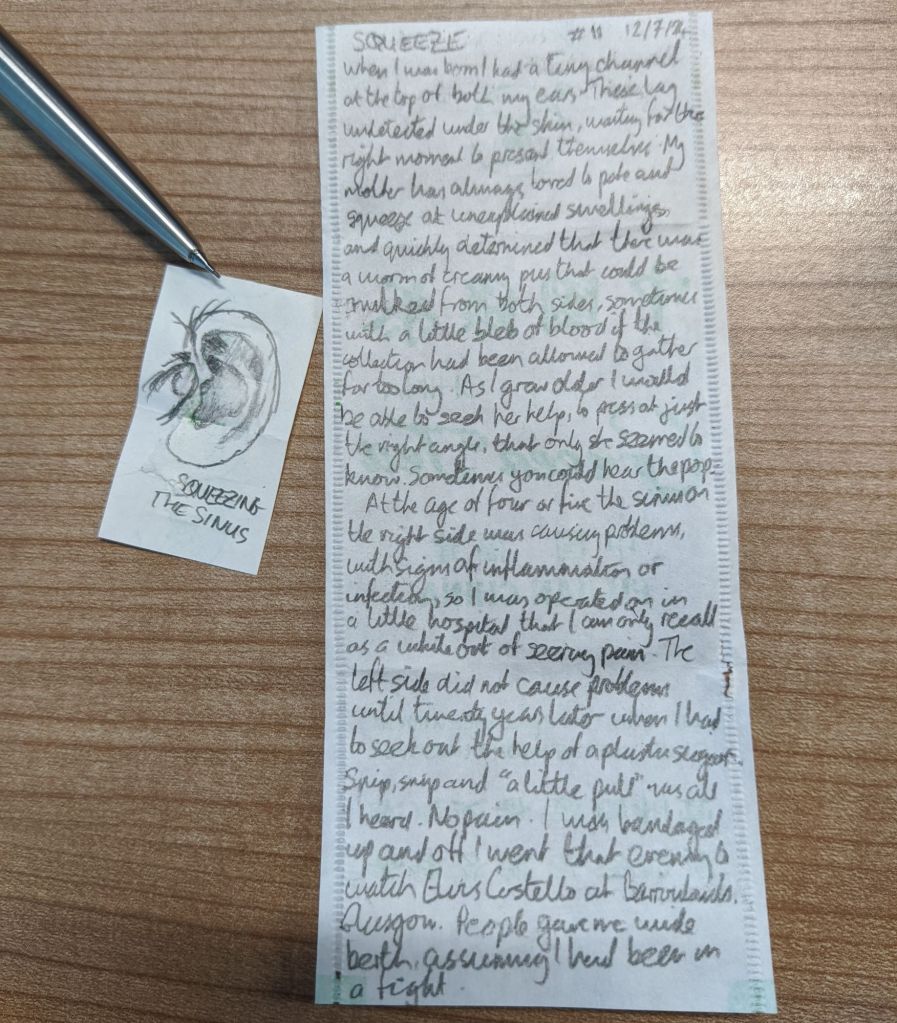 SQUEEZE #11 12/7/24
When I was born I had a tiny channel
at the top of both my ears. These lay
undetected under the skin, waiting for the
right moment to present themselves. My
mother has always loved to poke and
squeeze at unexplained swellings,
and quickly determined that there was
a worm of creamy pus that could be
milked from both sides, sometimes
with a little bleb of blood if the
collection had been allowed to gather
for too long. As I grew older I would
be able to seek her help, to press at just
the right angle, that only she seemed to
know. Sometimes you could hear the pop.
At the age of four or five the sinus on
the right side was causing problems,
with signs of inflammation or
infection, so I was operated on in
a little hospital that I can only recall
as a white out of seering pain. The
left side did not cause problems
until twenty years later when I had
to seek out the help of a plastic surgeon.
Snip, snip and "a little pull" was all
I heard. No pain. I was bandaged
up and off I went that evening to
watch Elvis Costello at Barrowlands,
Glasgow. People gave me wide
berth, assuming I had been in
a fight.
SQUEEZING
THE SINUS